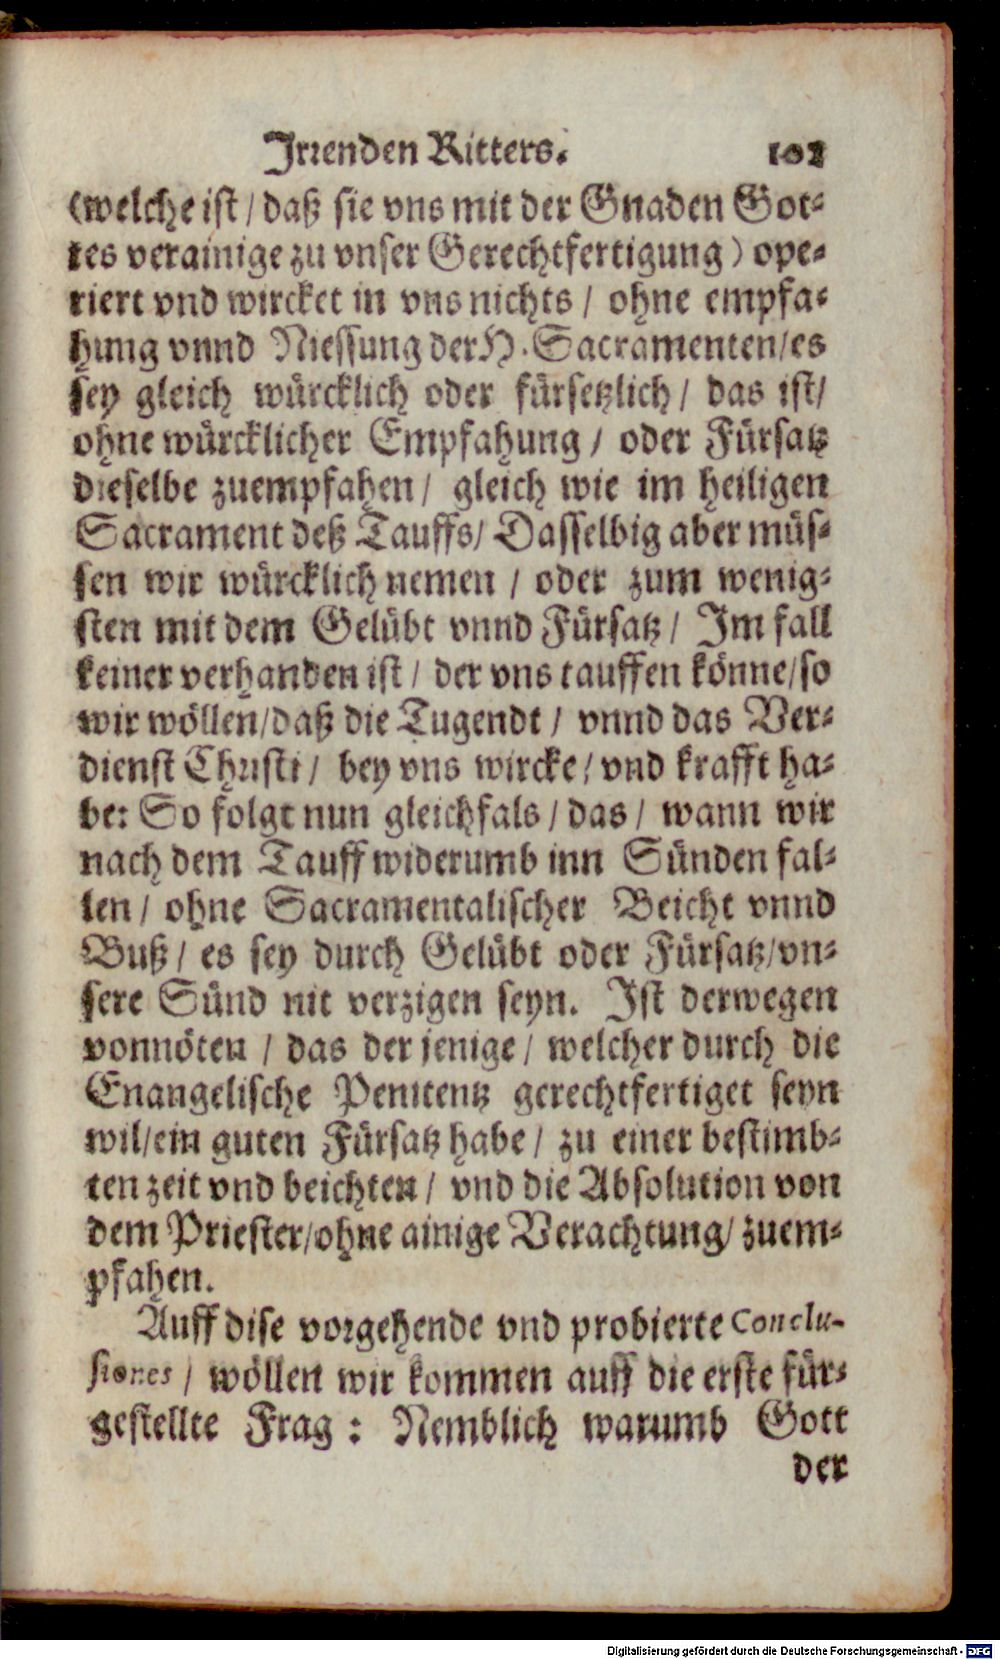 Irrenden Ritters. 102
(welche ist / daß sie vns mit der Gnaden Got-
tes verainige zu vnser Gerechtfertigung) ope-
riert vnd wircket in vns nichts / ohne empfa-
hung vnnd Niessung der H. Sacramenten / es
sey gleich würcklich oder fürsetzlich / das ist /
ohne würcklicher Empfahung / oder Fürsatz
dieselbe zuempfahen / gleich wie im heiligen
Sacrament deß Tauffs / Dasselbig aber müs-
sen wir würcklich nemen / oder zum wenig-
sten mit dem Gelübt vnnd Fürsatz / Im fall
keiner verhanden ist / der vns tauffen könne / so
wir wöllen / daß die Tugendt / vnnd das Ver-
dienst Christi / bey vns wircke / vnd krafft ha-
be: So folgt nun gleichfals / das / wann wir
nach dem Tauff widerumb inn Sünden fal-
len / ohne Sacramentalischer Beicht vnnd
Buß / es sey durch Gelübt oder Fürsatz / vn-
sere Sünd nit verzigen seyn. Ist derwegen
vonnöten / das der jenige / welcher durch die
Enangelische Penitentz gerechtfertiget seyn
wil / ein guten Fürsatz habe / zu einer bestimb-
ten zeit vnd beichten / vnd die Absolution von
dem Priester / ohne ainige Verachtung / zuem-
pfahen.
Auff dise vorgehende vnd probierte Conclu-
siones / wöllen wir kommen auff die erste für-
gestellte Frag: Nemblich warumb Gott
der
Digitalisierung gefördert durch die Deutsche Forschungsgemeinschaft - DFG